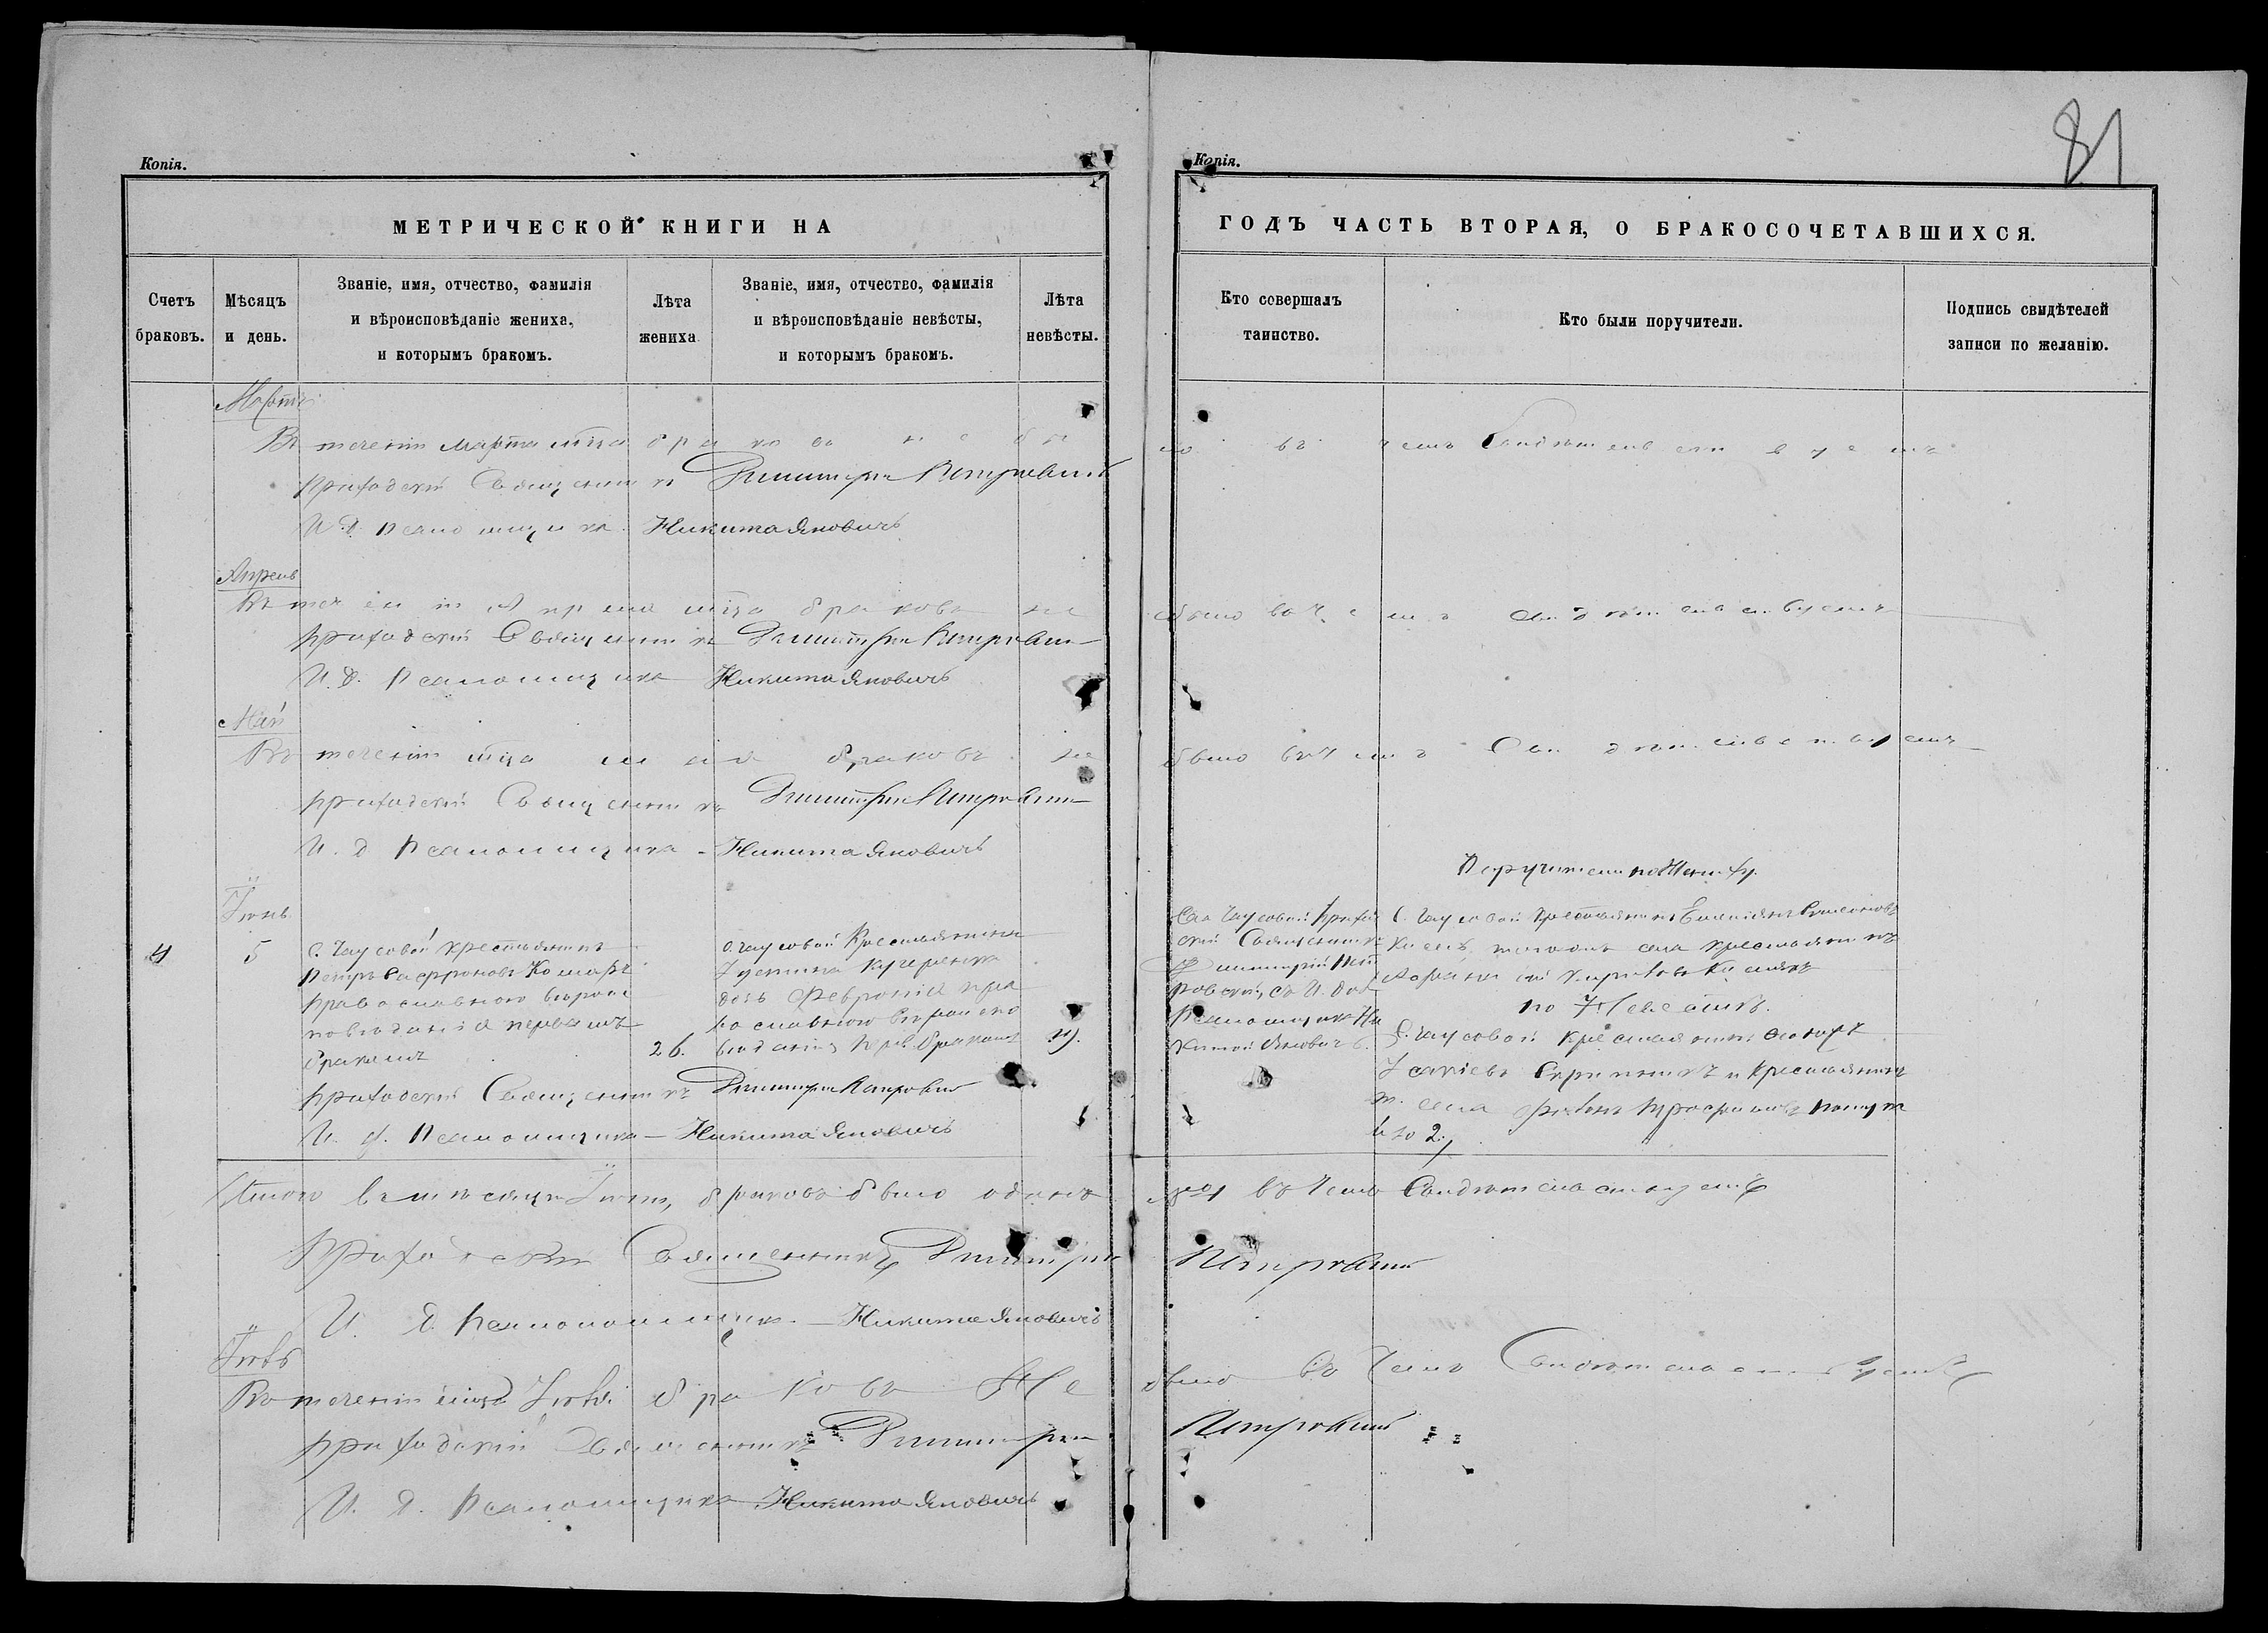 81
Копія.
Копія.
МЕТРИЧЕСКОЙ КНИГИ НА
ГОДЪ ЧАСТЬ ВТОРАЯ, О БРАКОСОЧЕТАВШИХСЯ.
Счетъ браковъ.
Мѣсяцъ и день.
Званіе, имя, отчество, фамилія и вѣроисповѣданіе жениха, и которымъ бракомъ.
Лѣта жениха
Званіе, имя, отчество, фамилія и вѣроисповѣданіе невѣсты, и которымъ бракомъ.
Лѣта невѣсты.
Кто совершалъ таинство.
Кто были поручители.
Подпись свидѣтелей записи по желанію.
Мартъ
Въ теченіи марта мца браковъ не бы
ло въ чемъ свидѣтельствуемъ
приходскій Священникъ Димитрій Петровскій
И. д. псаломщика Никита Яновичъ
Апрель
Въ теченіи Апреля мца браковъ не
было въ чемъ свидѣтельствуемъ
приходскій Священникъ Димитрій Петровскій
И. д. Псаломщика Никита Яновичъ
Май
Въ теченіи мца мая браковъ не
было въ чемъ Свидѣтельствуемъ
приходскій Священникъ Димитрій Петровскій
И. д. Псаломщика Никита Яновичъ
Іюнь
4
5
С. Чаусовой крестьянинъ
Петръ Комаръ
православного вѣрои
повѣданія первымъ
бракомъ
26.
с Чаусовой Крестьянина
Іустина Кучеренка
дочь Февронія пра
вославного вѣроиспо
вѣданія перв. бракомъ
19.
Села Чаусовой Прихо
скій Священникъ
Димитрій Пет
ровскій, съ И. дол
Псаломщика Ни
китой Яновичъ
Поручители по Жениху
С. Чаусовой Крестьянинъ Емиліянъ
тогожъ села крестьянинъ
по Невѣстѣ.
С. Чаусовой крестьянинъ
и крестьянинъ
т. села
приходскій Священникъ Димитрій Петровскій
И. д. Псаломщика — Никита Яновичъ
Итого въ мѣсяцѣ Іюнѣ, браковъ было одинъ
№ 1 въ чемъ Свидѣтельствуемъ
Приходскій Священникъ Димитрій
Петровскій
И. д. Псаломщика — Никита Яновичъ
Іюль
Въ теченіи мца Іюля браковъ не
было въ чемъ Свидѣтельствуемъ
приходскій Священникъ Димитрій
Петровскій
И. д. Псаломщика Никита Яновичъ